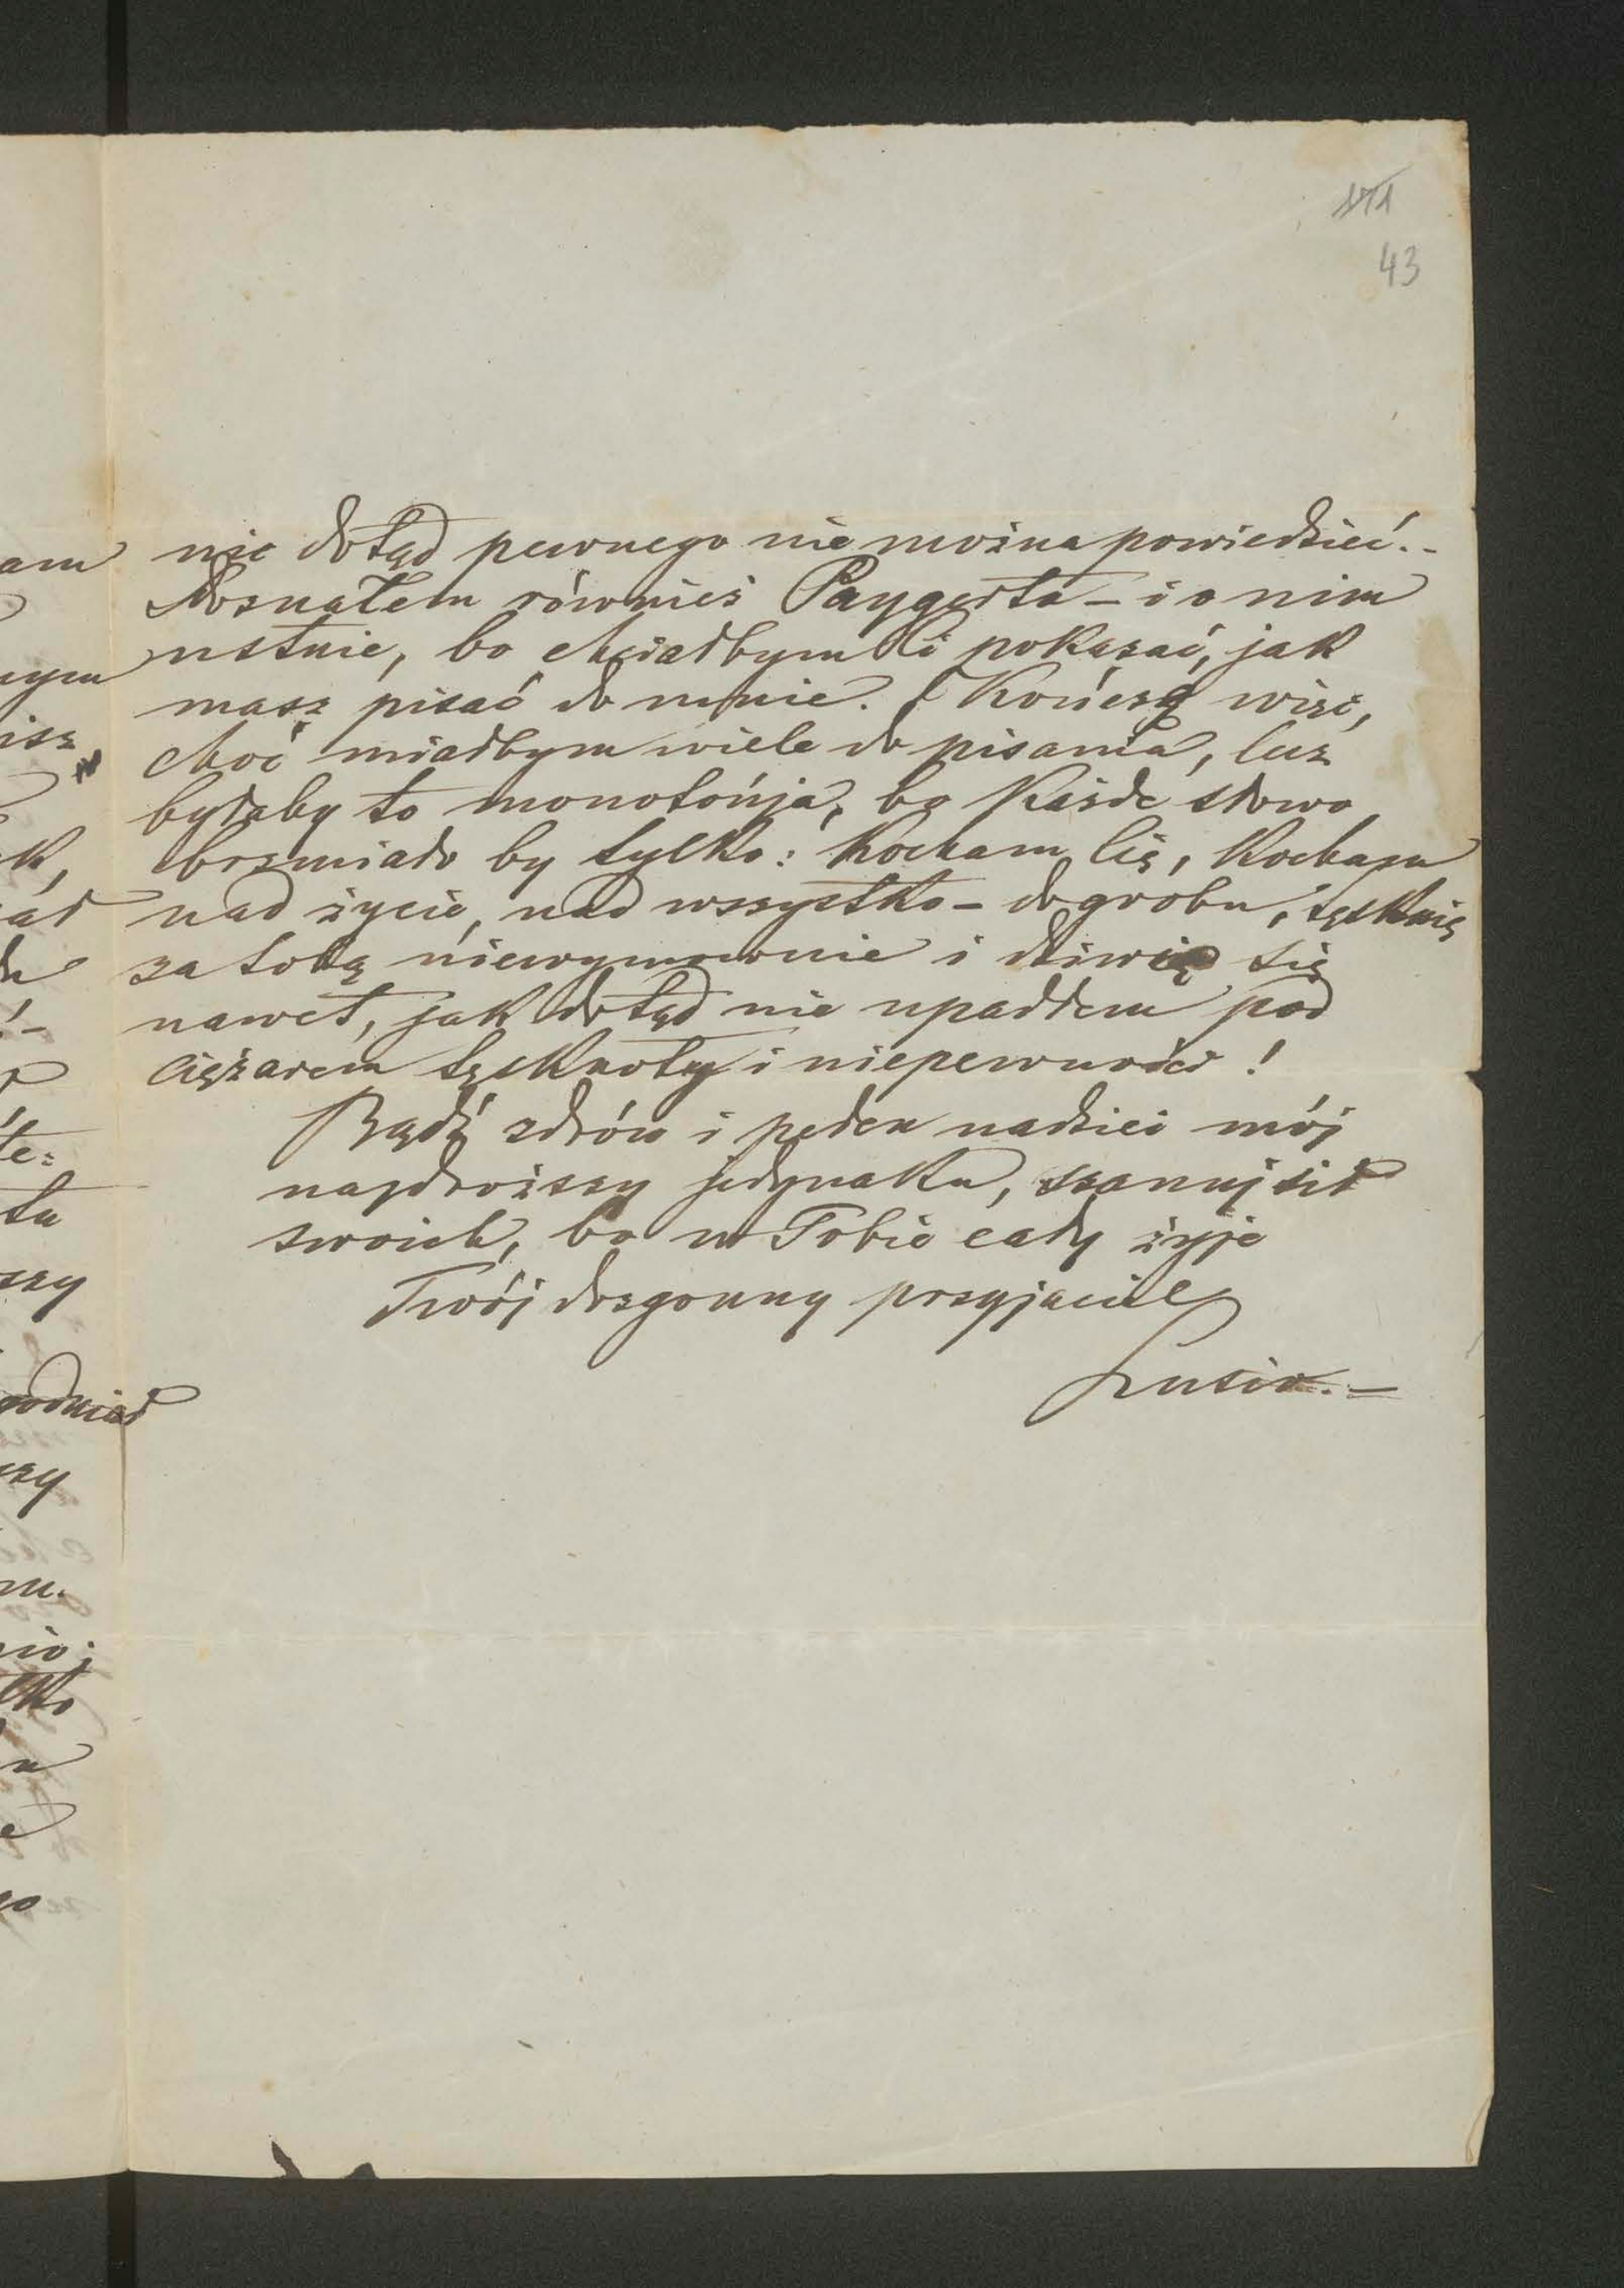 171
43
nic dotąd pewnego nie można powiedzieć.-
Poznałem również Paygerta – i o nim
ustnie, bo chciałbym Ci pokazać, jak
masz pisać do mnie. Kończę więc,
choć miałbym wiele do pisania, lecz
byłaby to monotónja, bo każde słowo
brzmiało by tylko: kocham Cię, kocham
nad życie, nad wszystko – do grobu, tęsknię
za tobą niewymownie i dziwię się
nawet, jak dotąd nie upadłem pod
ciężarem tęsknoty i niepewności!
Bądź zdrów i pełen nadziei mój
najdroższy jedynaku, szanuj sił
swoich, bo w Tobie cały żyje
Twój dozgonny przyjaciel
Lusio.–
am
nym
isz
k,
te=
tu
szy
szy
m.
nio;
lko